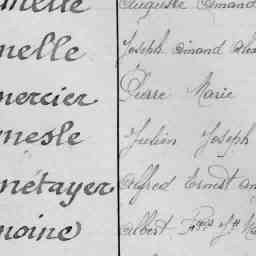 melle Auguste Amand
melle Joseph Amand
mercier Pierre Marie
mesle Julien Joseph
métayer Alfred Ernest
moine Albert